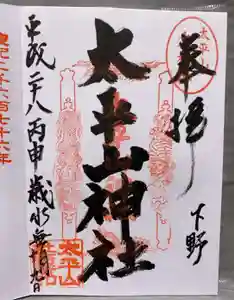 奉拝
下野
太平山神社
平成二十八丙申歳水無月九日
皇紀二千六百七十六年
太平山